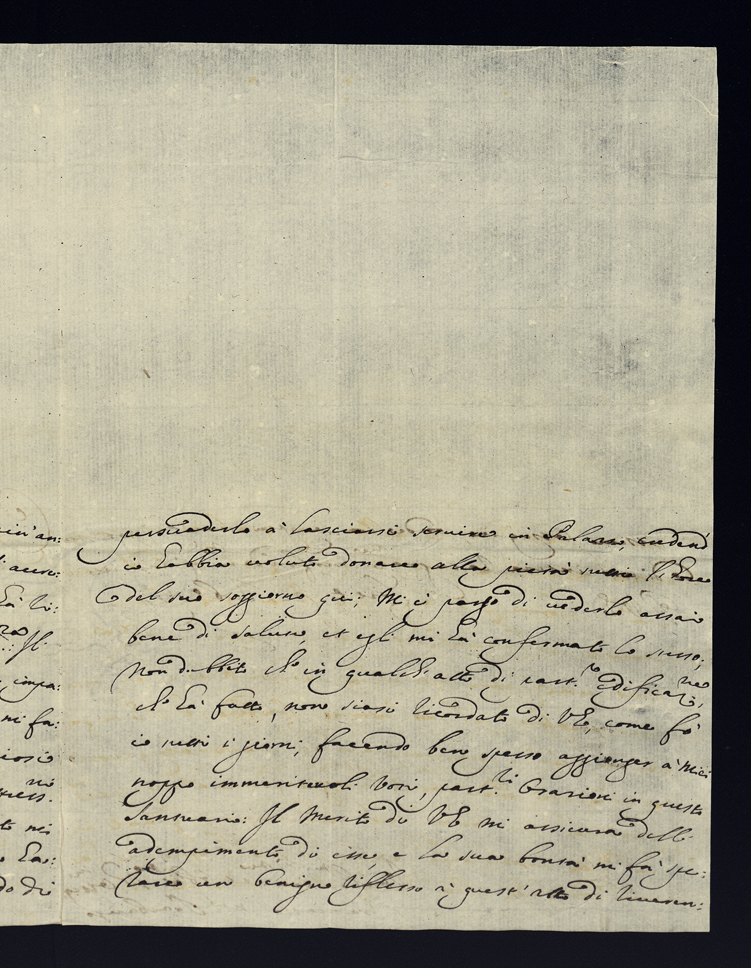 cin' an:
persuaderlo à lasciarsi servire in Palazzo, credend
accre:
io habbia voluto donare alla pietà tutte l'hore
hà li:
del suo soggiorno qui; Mi è parso di vederlo assai
Il
bene di salute, et egli mi hà confermato lo stesso;
impa:
Non dubbito ch'in qualch'atto di part.re edificaz.ne,
mi fa:
ch'hà fatto, non siasi ricordato di VE, come fò
io tutti i giorni, facendo ben spesso aggionger à miei
troppo immeritevoli voti, part.ri Orazioni in questo
to mi
Santuario: Il merito di VE mi assicura dell'
ha:
adempimento di esse, e la sua bontà mi fà spe:
do di
rare un benigno riflesso à quest'atto di riveren: